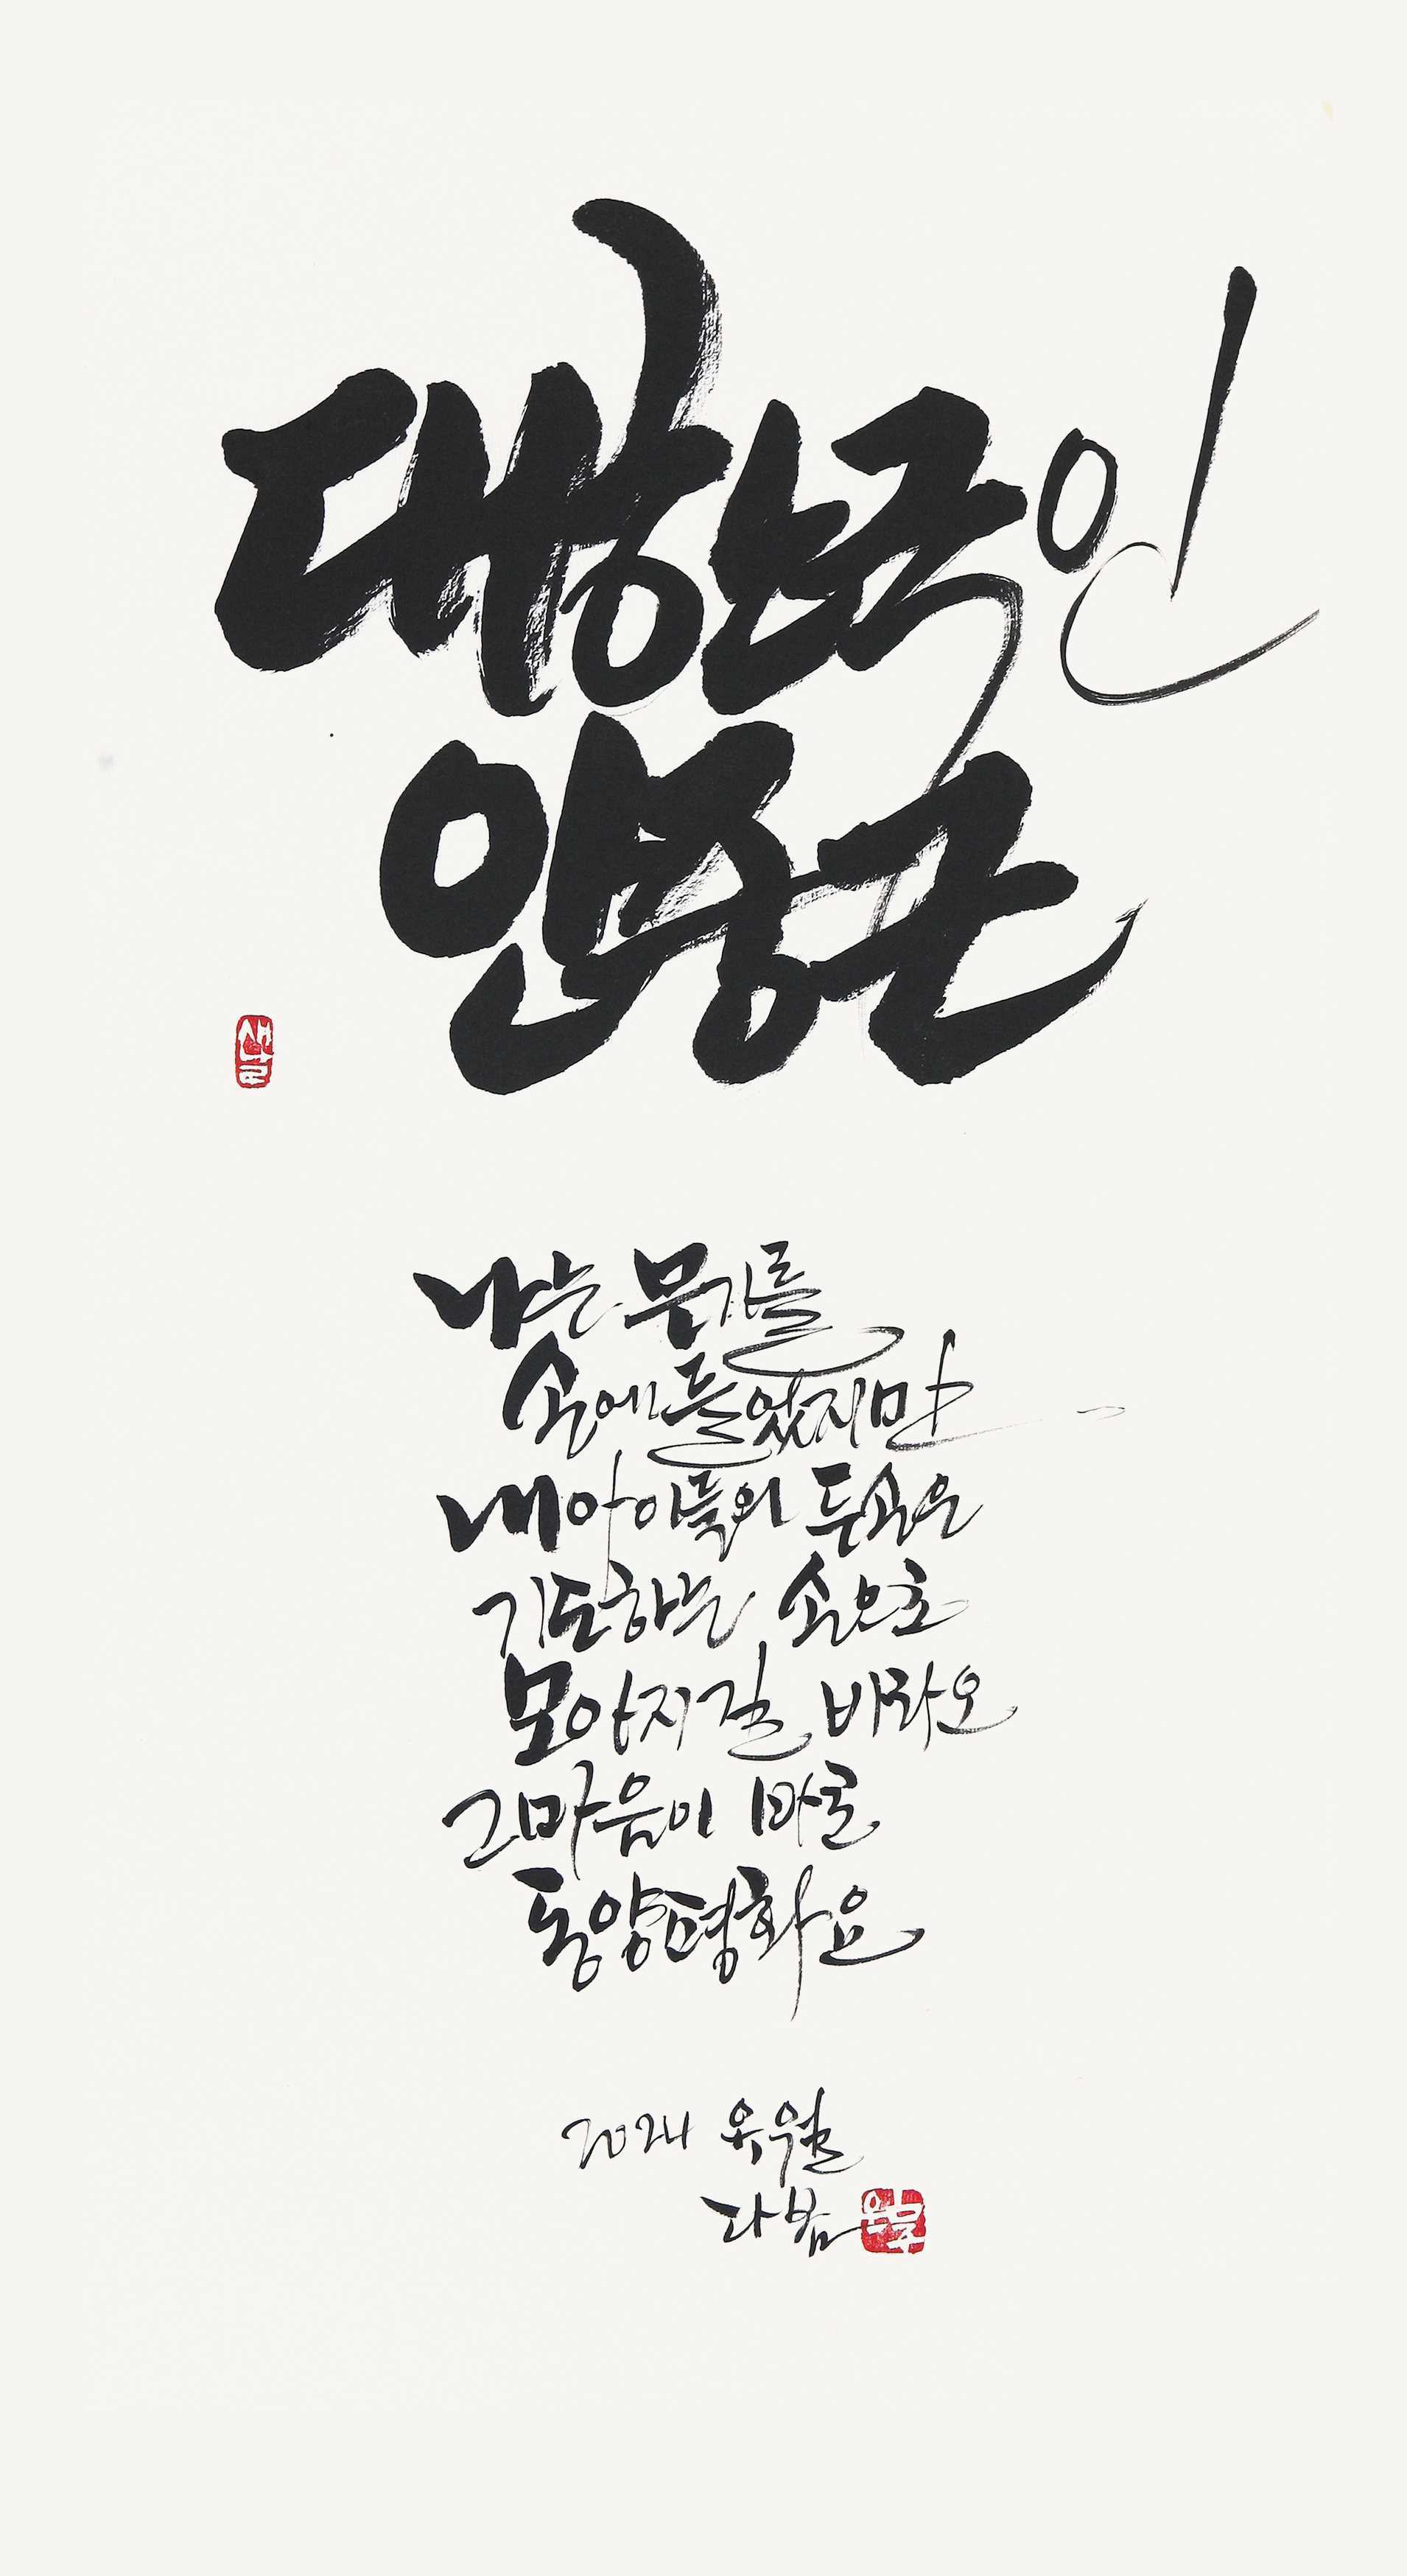 대한국인
안중근
나는 무기를
손에 들었지만
내 아이들의 두 손은
기도하는 손으로
모아지길 비라오
그 마음이 바로
동양평화요
2024 유월
다봄